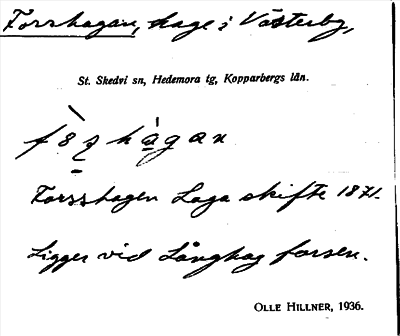 Forshagan, hage i Västerby,
St. Skedvi sn, Hedemora tg, Kopparbergs län.
Forsshagen Laga skifte 1871.
Ligger vid Långhag forsen.
OLLE HILLNER, 1936.